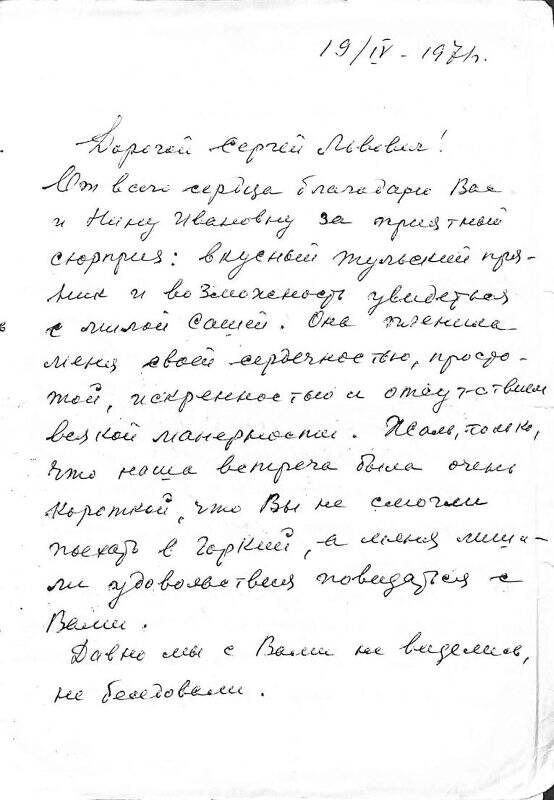 19/IV - 1971г.
Дорогой Сергей Львович!
От всего сердца благодарю Вас
и Нину Ивановну за приятный
сюрприз: вкусный тульский пря-
ник и возможность увидеться
с милой Сашей. Она пленила
меня своей сердечностью, просто-
той, искренностью и отсутствием
всякой манерности. Жаль, только,
что наша встреча была очень
короткой, что Вы не смогли
поехать в Горкий, а меня лиши-
ли удовольствия повидаться с
Вами.
Давно мы с Вами не виделись,
не беседовали.